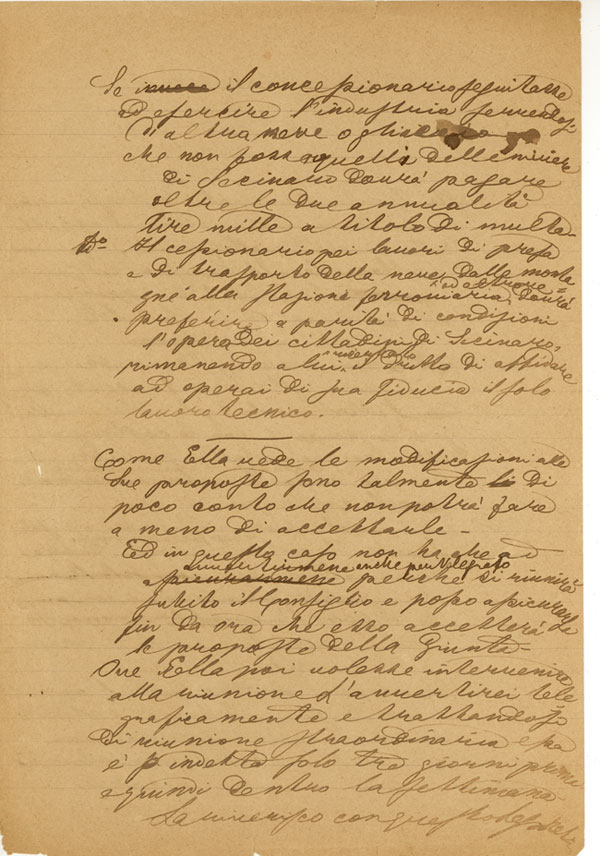 Se invece il concessionario seguitasse
ad esercire l'industria servendosi
d'altra neve o ghiaccio
che non fosse quelli delle miniere
di Secinaro dovrà pagare
oltre le due annualità
lire mille a titolo di multa
Il cessionario pei lavori di presa
e di trasporto della neve dalle monta
gne alla Stazione ferroviaria, od altrove dovrà
preferire a parità di condizioni
l'opera dei cittadini di Secinaro,
rimanendo a lui riservato il dritto di affidare
ad operai di sua fiducia il solo
lavoro tecnico.
Come Ella vede le modificazioni alle
sue proposte sono talmente di
poco conto che non potrà fare
a meno di accettarle -
Ed in questo caso non ha che ad
avvertirmene anche per telegrafo
assicurarmene perché si riunirà
subito il Consiglio e posso assicurarle
fin da ora che esso accetterà
le proposte della Giunta -
Ove Ella poi volesse intervenire
alla riunione d'avvertirci tele
graficamente e trattandosi
di riunione straordinaria essa
è indetta solo tre giorni prima
e quindi dentro la settimana -
La riverisco con